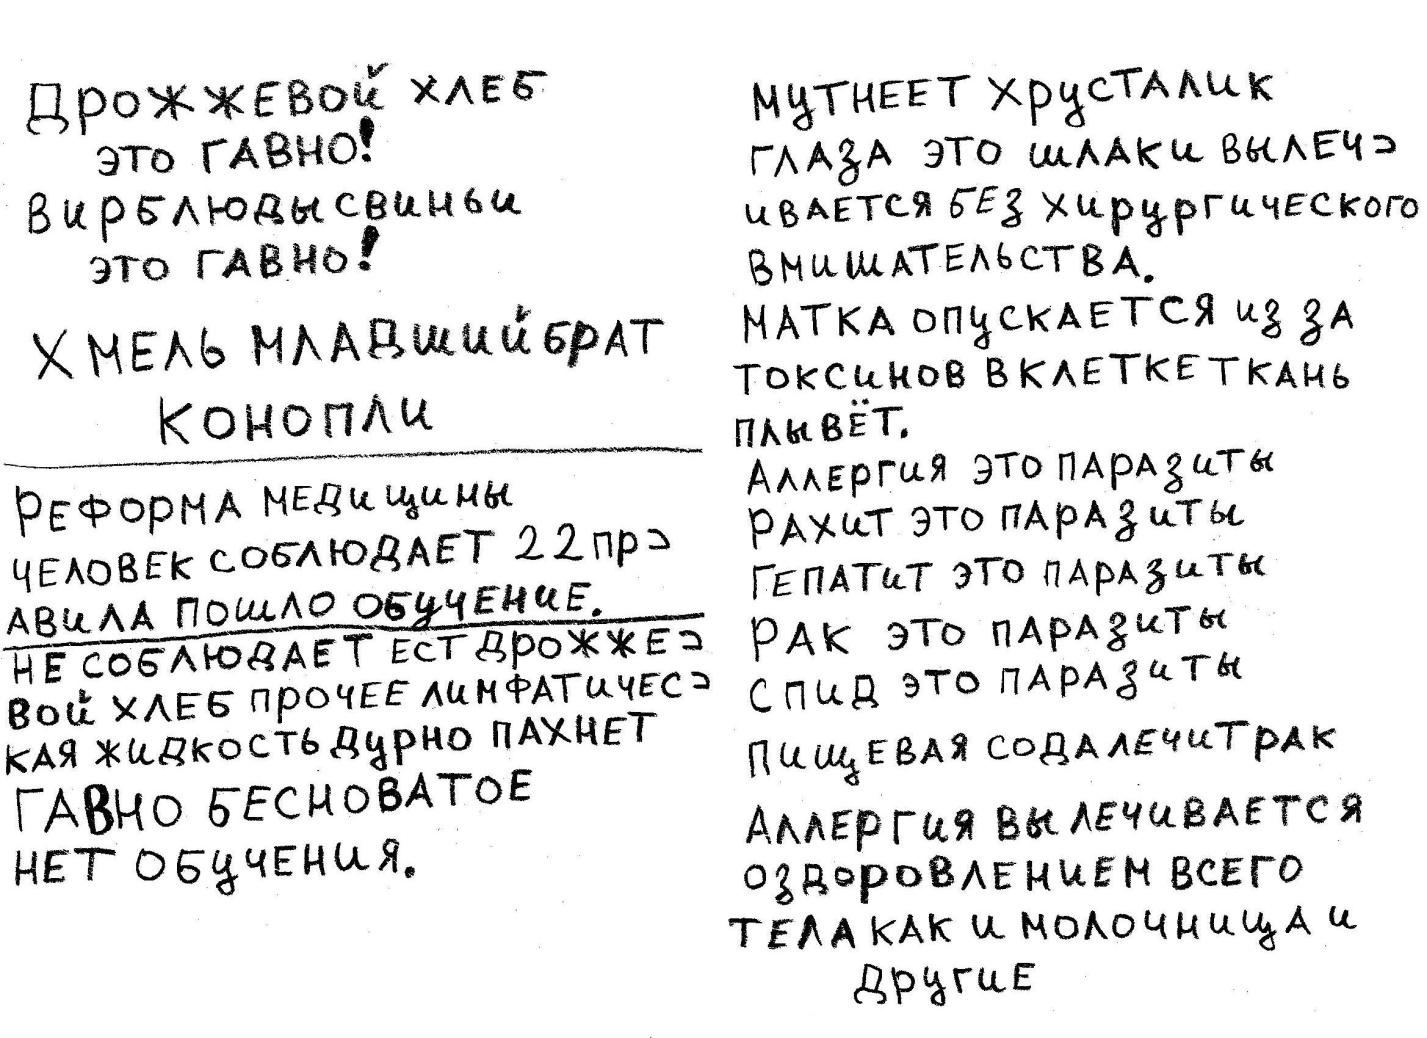 ДРОЖЖЕВОЙ ХЛЕБ
ЭТО ГАВНО!
ВИРБЛЮДЫ СВИНЬИ
ЭТО ГАВНО!
ХМЕЛЬ МЛАДШИЙ БРАТ
КОНОПЛИ
РЕФОРМА МЕДИЦИНЫ
ЧЕЛОВЕК СОБЛЮДАЕТ 22 ПР⊃
АВИЛА ПОШЛО ОБУЧЕНИЕ.
НЕ СОБЛЮДАЕТ ЕСТ ДРОЖЖЕ⊃
ВОЙ ХЛЕБ ПРОЧЕЕ ЛИМФАТИЧЕС⊃
КАЯ ЖИДКОСТЬ ДУРНО ПАХНЕТ
ГАВНО БЕСНОВАТОЕ
НЕТ ОБУЧЕНИЯ.
МУТНЕЕТ ХРУСТАЛИК
ГЛАЗА ЭТО ШЛАКИ ВЫЛЕЧ⊃
ИВАЕТСЯ БЕЗ ХИРУРГИЧЕСКОГО
ВМИШАТЕЛЬСТВА.
МАТКА ОПУСКАЕТСЯ ИЗ ЗА
ТОКСИНОВ В КЛЕТКЕ ТКАНЬ
ПЛЫВЁТ.
АЛЛЕРГИЯ ЭТО ПАРАЗИТЫ
РАХИТ ЭТО ПАРАЗИТЫ
ГЕПАТИТ ЭТО ПАРАЗИТЫ
РАК ЭТО ПАРАЗИТЫ
СПИД ЭТО ПАРАЗИТЫ
ПИЩЕВАЯ СОДА ЛЕЧИТ РАК
АЛЛЕРГИЯ ВЫЛЕЧИВАЕТСЯ
ОЗДОРОВЛЕНИЕМ ВСЕГО
ТЕЛА КАК И МОЛОЧНИЦА И
ДРУГИЕ